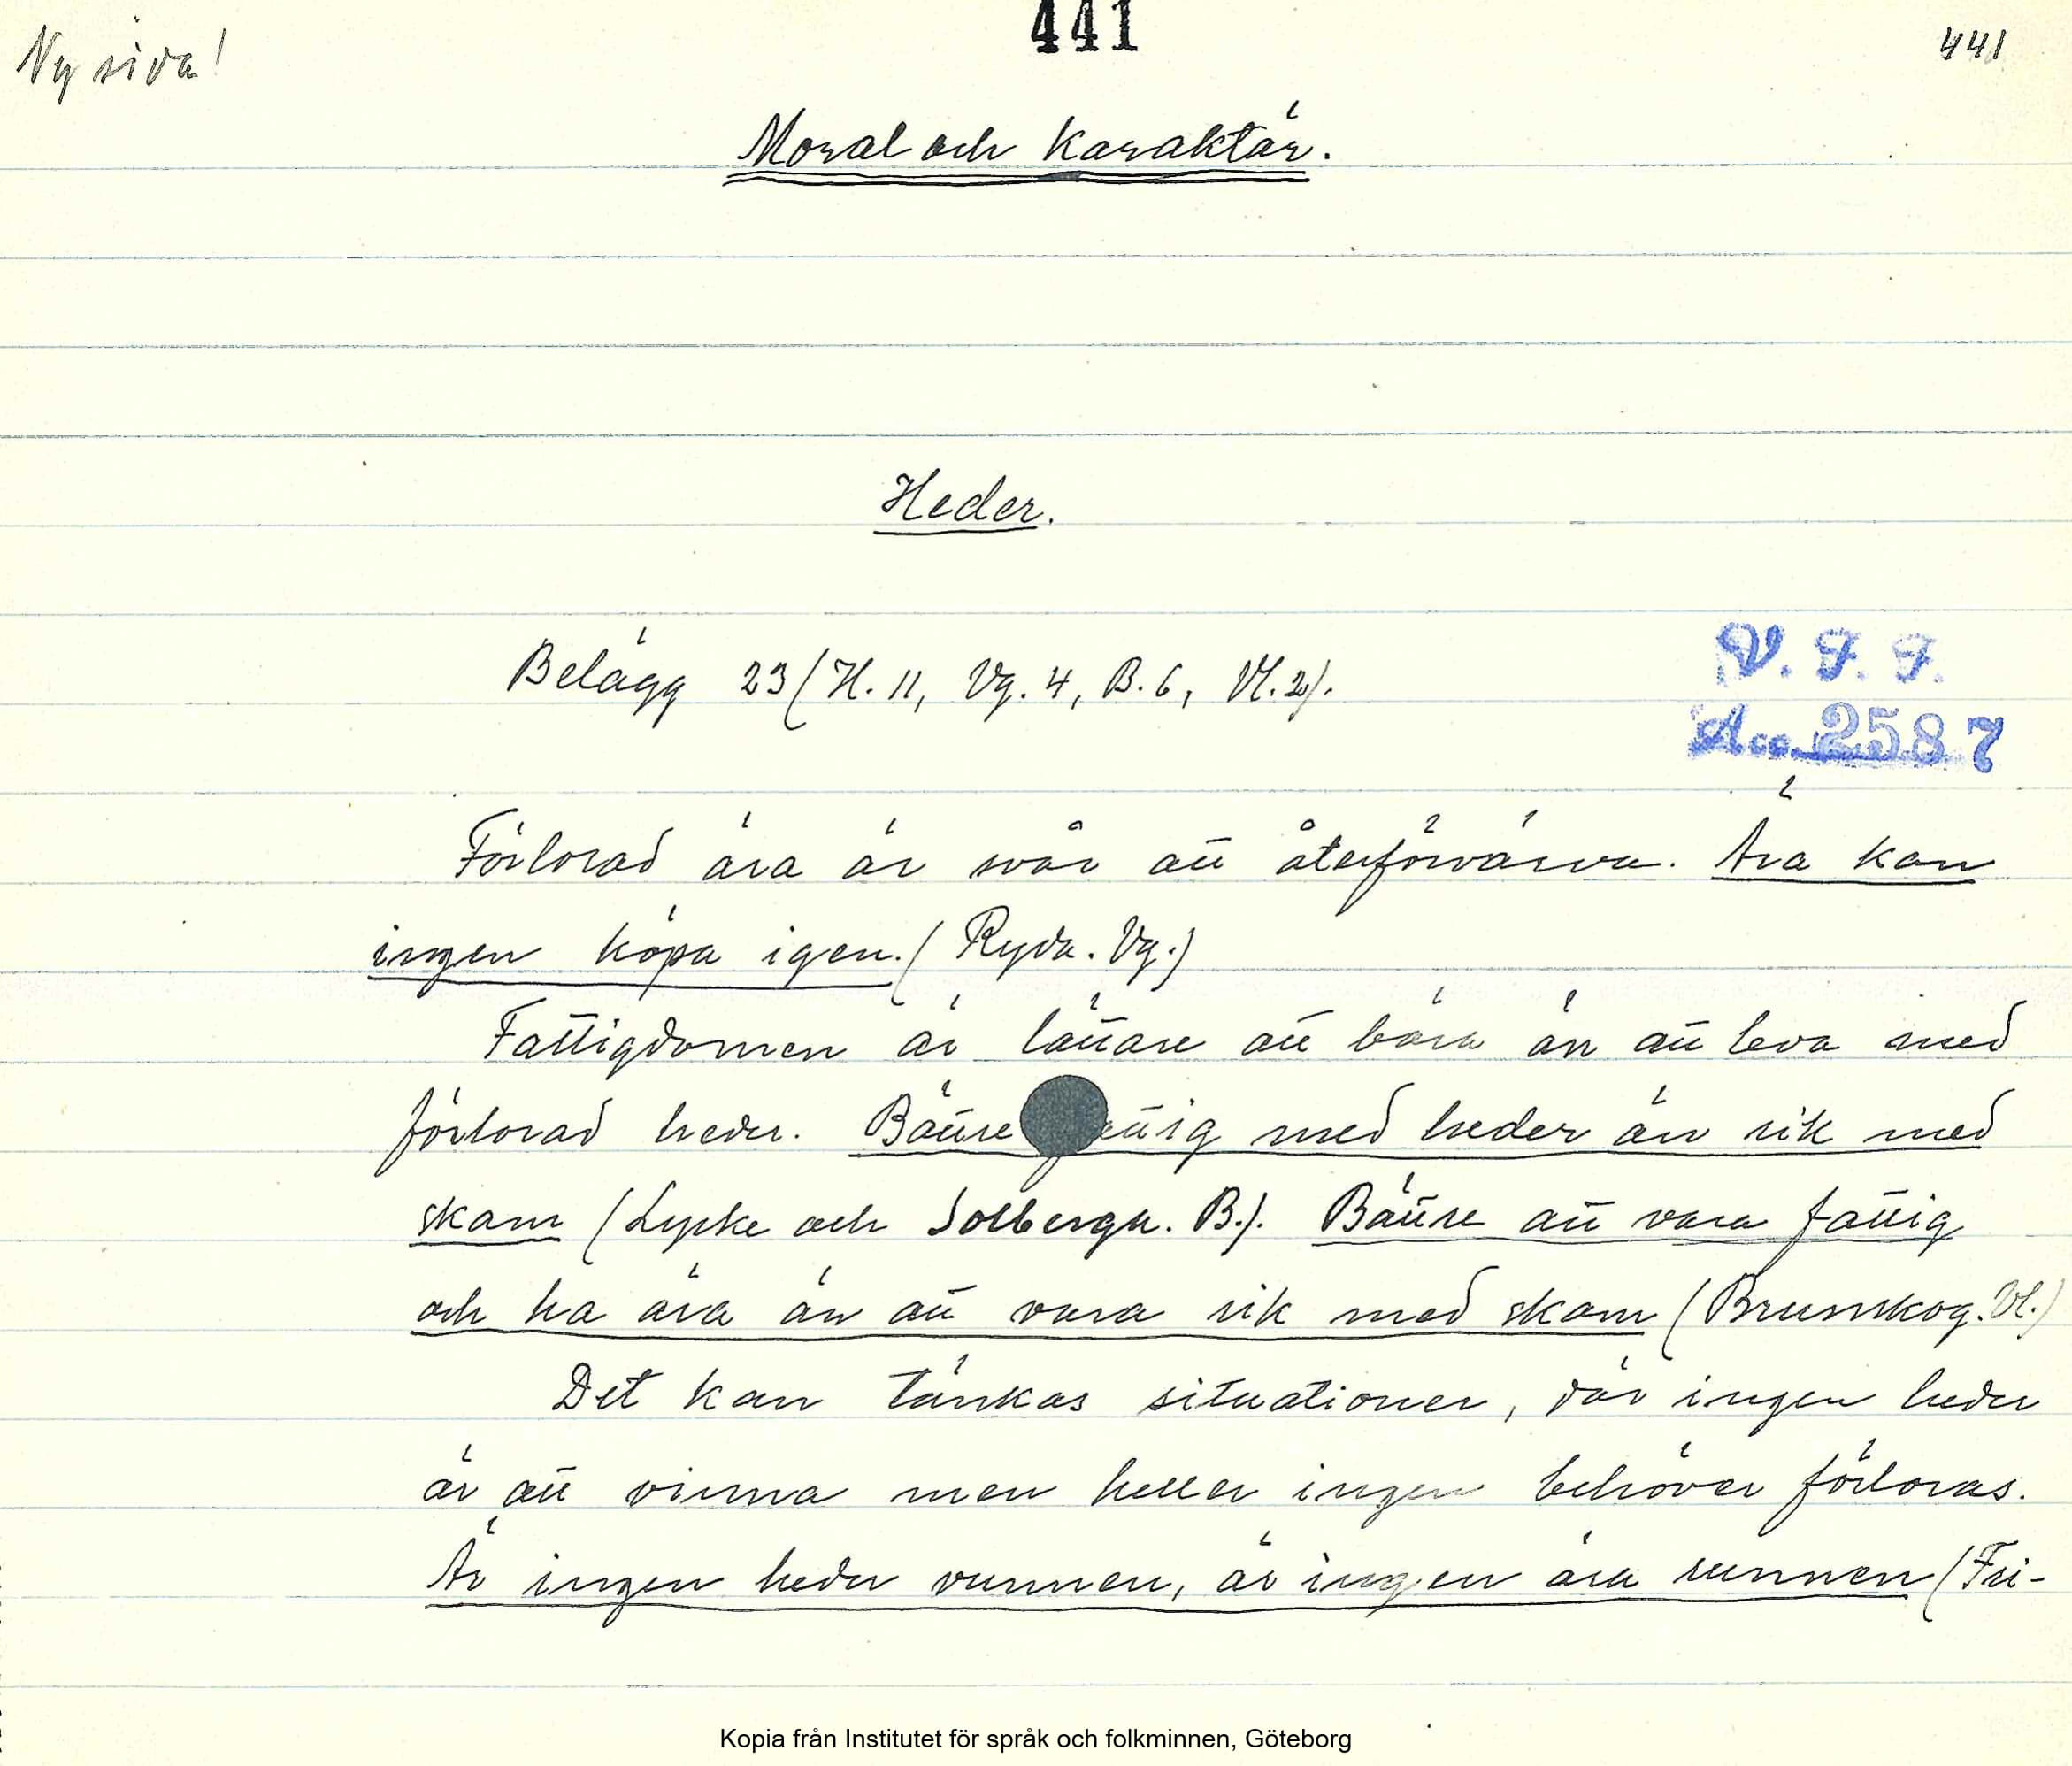 Ny sida!
441
441
Moral och karaktär.
Heder.
Belägg 23 (H. 11, Vg. 4, B. 6, Vl. 2).
V. F. F.
Acc. 2587
Förlorad ära är svår att återförvärva. Ära kan
ingen köpa igen. (Ryda. Vg.)
Fattigdomen är lättare att bära än att leva med
förlorad heder. Bättre fattig med heder än rik med
skam (Lycke och Solberga. B.). Bättre att vara fattig
och ha ära än att vara rik med skam (Brunskog. Vl.)
Det kan tänkas situationer, där ingen heder
är att vinna men heller ingen behöver förloras.
Är ingen heder vunnen, är ingen ära runnen (Fri-
Kopia från Institutet för språk och folkminnen, Göteborg